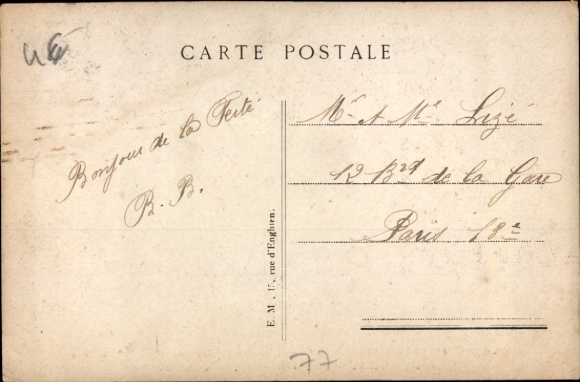 CARTE POSTALE
Bonjour de la Ferté
B. B.
E. M., 15, rue d'Enghien.
Mr et Me Lizé
12 Brd de la Gare
Paris 13e
77